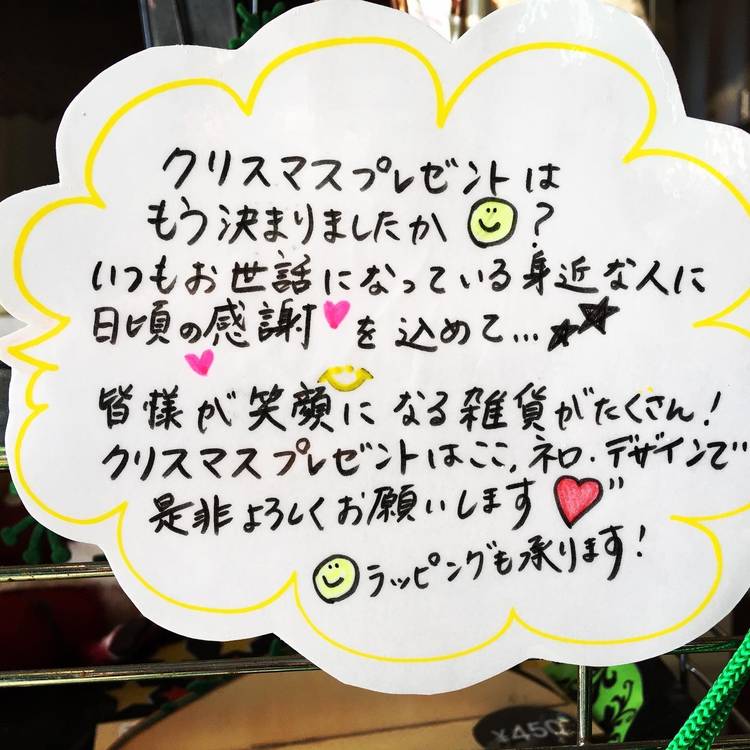 クリスマスプレゼントは
もう決まりましたか?
いつもお世話になっている身近な人に
日頃の感謝を込めて...
皆様が笑顔になる雑貨がたくさん!
クリスマスプレゼントはここ、ネロ・デザインで
是非よろしくお願いします
ラッピングも承ります!
¥450